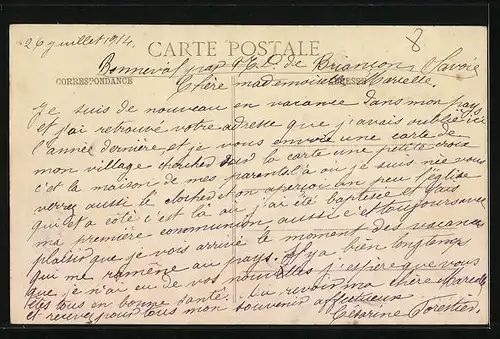 26 juillet 1914.
8
CARTE POSTALE
Bonneval par N.D. de Briançon, Savoie
CORRESPONDANCE
Chère mademoiselle Marielle.
Je suis de nouveau en vacance dans mon pays
et j'ai retrouvé votre adresse que j'avais oublié ici
l'année dernière et je vous envoie une carte de
mon village dans la carte une petite croix
c'est la maison de mes parents là ou je suis née vous
verrez aussi le clocher on aperçoit un peu l'église
qui est a coté c'est là ou j'ai été baptisée et fais
ma première communion aussi c'est toujours avec
plaisir que je vois arrivé le moment des vacances
qui me ramène au pays. Il y a bien longtemps
que je n'ai eu de vos nouvelles j'espère que vous
êtes tous en bonne santé. Au revoir ma chère Marielle
et recevez pour tous mon souvenir affectueux
Césarine Forestier.